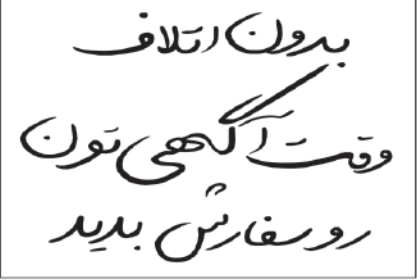 بدون اتلاف
وقت آگهی تون
رو سفارش بدید